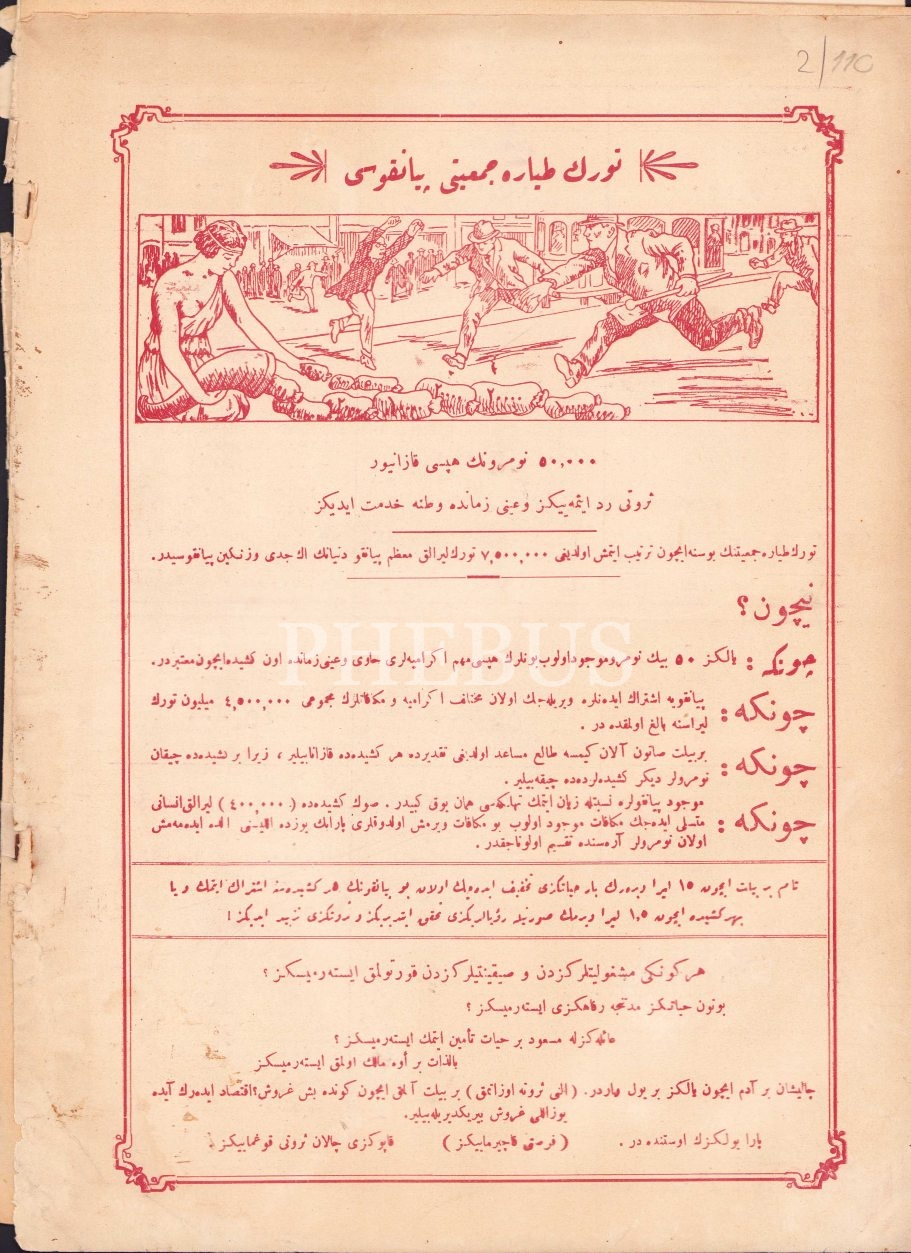 2/110
تورك طیاره جمعیتی پیانقوسی
٥٠,٠٠٠ نومرونك هپسی قازانیور
ثروتی رد ایتمه‌ییكز وعینی زمانده وطنه خدمت ایدیكز
تورك طیاره جمعیتنك بوسنه ایچون ترتیب ایتمش اولدیغی ٧,٥٠٠,٠٠٠ تورك لیرالق معظم پیانقو دنیانك اك جدی وزنكین پیانقوسیدر.
نیچون؟
چونكه : یالكز ٥٠ بیك نومرو موجود اولوب بونلرك هپسی مهم اكرامیه‌لری حاوی وعینی زمانده اون كشیده ایچون معتبردر.
چونكه : پیانقویه اشتراك ایدنلره ویریله‌جك اولان مختلف اكرامیه و مكافاتلرك مجموعی ٤,٥٠٠,٠٠٠ میلیون تورك
لیراسنه بالغ اولمقده در .
چونكه : بربیلت صاتون آلان كیمسه طالع مساعد اولدیغی تقدیرده هر كشیده‌ده قازانابیلیر ، زیرا بر كشیده‌ده چیقان
نومرولر دیكر كشیده‌لرده‌ده چیقه‌بیلیر .
چونكه : موجود پیانقولره نسبتله زیان ایتمك تهلكه‌سی همان یوق كبیدر . صوك كشیده‌ده (٤٠٠,٠٠٠) لیرالق انسانی
متسلی ایده‌جك مكافات موجود اولوب بو مكافات ویرمش اولدوقلری پارانك یوزده اللیسنی الده ایده‌مه‌مش
اولان نومرولر آره‌سنده تقسیم اولوناجقدر .
تام بر بیلت ایچون ١٥ لیرا ویره‌رك بار حیاتكزی تخفیف ایده‌جك اولان بو پیانقونك هر كشیده‌سنه اشتراك ایتمك و یا
بهر كشیده ایچون ١,٥ لیرا ویرمك صورتیله رؤیالریكزی تحقق ایتدیریكز و ثروتكزی تزیید ایدیكز !
هركونكی مشغولیتلركزدن و صیقینتیلركزدن قورتولمق ایسته‌رمیسكز ؟
بوتون حیاتكز مدتجه رفاهكزی ایسته‌رمیسكز ؟
عائله‌كزله مسعود بر حیات تأمین ایتمك ایسته‌رمیسكز ؟
بالذات بر أوه مالك اولمق ایسته‌رمیسكز
چالیشان بر آدم ایچون یالكز بر یول واردر. (الی ثروته اوزاتمق) بر بیلت آلمق ایچون كونده بش غروش؟ اقتصاد ایده‌رك آیده
یوزاللی غروش بیریكدیریله‌بیلیر.
پارا یولكزك اوستنده در . (فرصتی قاچیرمایكز) قاپوكزی چالان ثروتی قوغمایكز .
PHEBUS